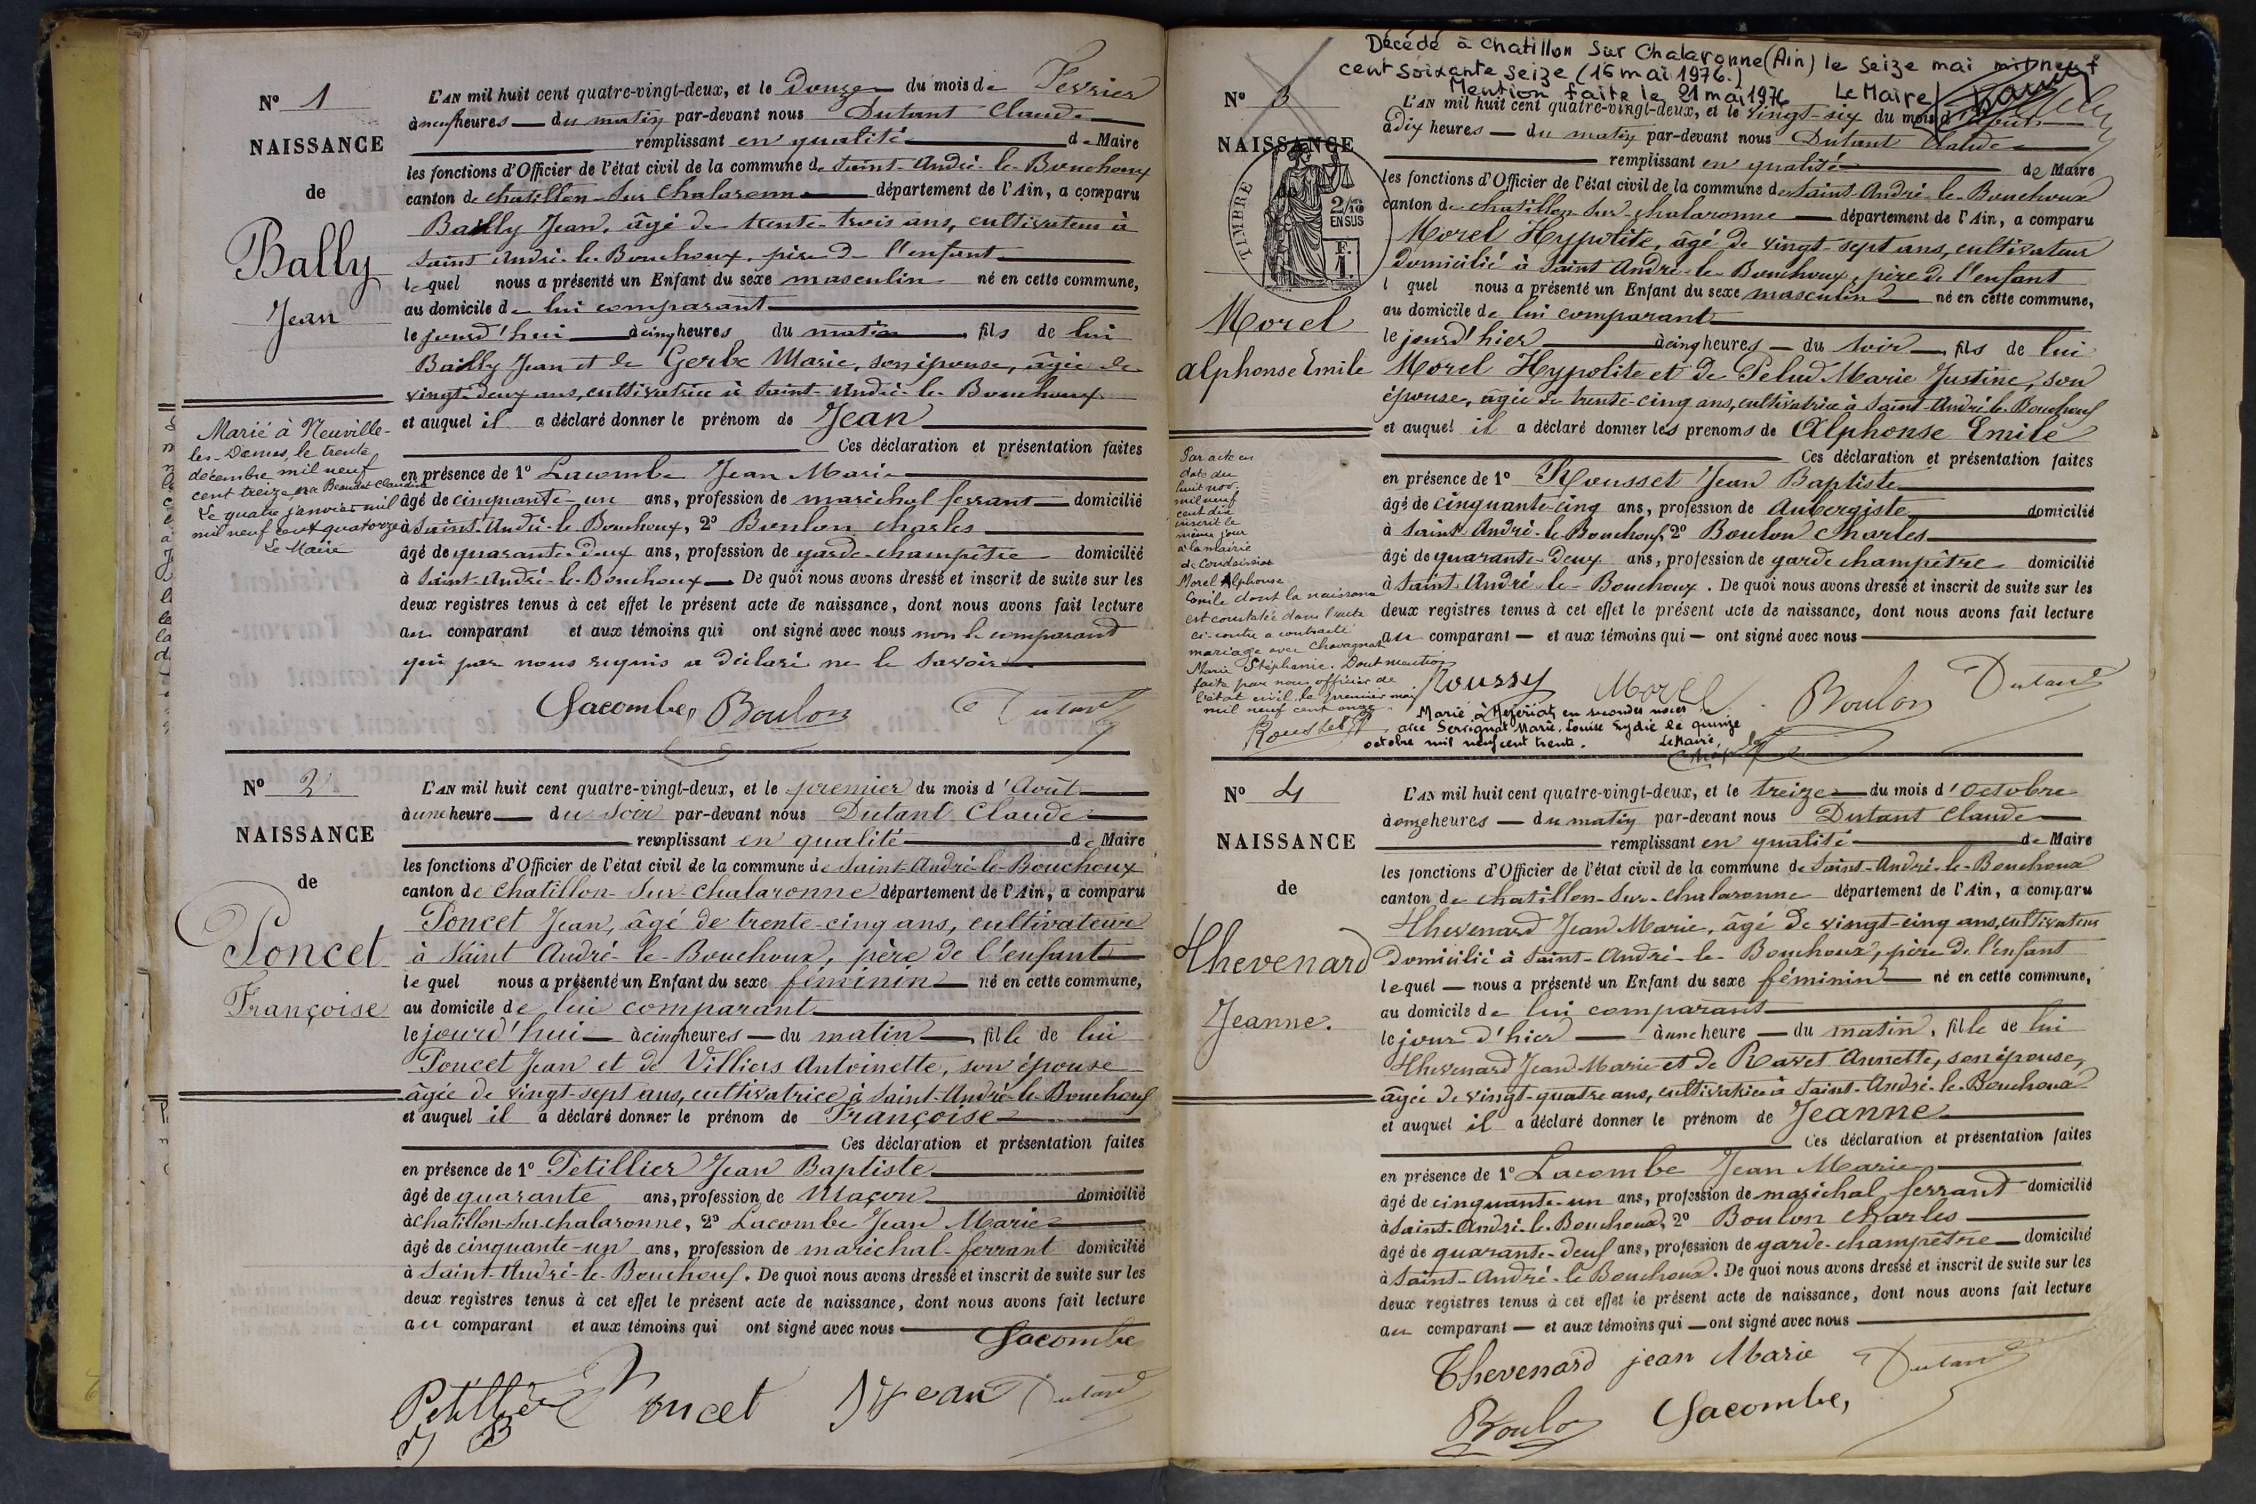 N° 1
NAISSANCE
de
Bally
Jean
Marié à Neuville-
les-Dames, le trente
décembre mil neuf
cent treize, avec Beaudet Claudine
Le quatre janvier mil
mil neuf cent quatorze
Le Maire
L'AN mil huit cent quatre-vingt-deux, et le douze du mois de Février
à neuf heures du matin par-devant nous Dutant Claude
remplissant en qualité de Maire
les fonctions d'Officier de l'état civil de la commune de Saint-André-le-Bouchoux
canton de chatillon-sur-chalaronne département de l'Ain, a comparu
Bailly Jean, âgé de trente-trois ans, cultivateur à
Saint André-le-Bouchoux, père de l'enfant
lequel nous a présenté un Enfant du sexe masculin né en cette commune,
au domicile de lui comparant
le jourd'hui à cinq heures du matin, fils de lui
Bailly Jean et de Gerbe Marie, son épouse, âgée de
vingt-deux ans, cultivatrice à Saint-André-le-Bouchoux
et auquel il a déclaré donner le prénom de Jean
Ces déclaration et présentation faites
en présence de 1° Lacombe Jean Marie
âgé de cinquante-un ans, profession de maréchal ferrant domicilié
à Saint-André-le-Bouchoux, 2° Boulon charles
âgé de quarante-deux ans, profession de garde-champêtre domicilié
à Saint-André-le-Bouchoux De quoi nous avons dressé et inscrit de suite sur les
deux registres tenus à cet effet le présent acte de naissance, dont nous avons fait lecture
au comparant et aux témoins qui ont signé avec nous non le comparand
qui par nous requis a déclaré ne le savoir
Lacombe, Boulon Dutant
N° 2
NAISSANCE
de
Poncet
Françoise
L'AN mil huit cent quatre-vingt-deux, et le premier du mois d'Août
à une heure du soir par-devant nous Dutant Claude
remplissant en qualité de Maire
les fonctions d'Officier de l'état civil de la commune de Saint-André-le-Bouchoux
canton de chatillon-sur-chalaronne département de l'Ain, a comparu
Poncet Jean, âgé de trente-cinq ans, cultivateur
à Saint André-le-Bouchoux, père de l'enfant
lequel nous a présenté un Enfant du sexe féminin né en cette commune,
au domicile de lui comparant
le jourd'hui à cinq heures du matin, fille de lui
Poncet Jean et de Villiers Antoinette, son épouse
âgée de vingt-sept ans, cultivatrice à Saint-André-le-Bouchoux
et auquel il a déclaré donner le prénom de Françoise
Ces déclaration et présentation faites
en présence de 1° Petillier Jean Baptiste
âgé de quarante ans, profession de Maçon domicilié
à chatillon-sur-chalaronne, 2° Lacombe Jean Marie
âgé de cinquante-un ans, profession de maréchal-ferrant domicilié
à Saint-André-le-Bouchoux. De quoi nous avons dressé et inscrit de suite sur les
deux registres tenus à cet effet le présent acte de naissance, dont nous avons fait lecture
au comparant et aux témoins qui ont signé avec nous
Lacombe
Petillier Poncet Jean Dutant
JB
Décédé à Chatillon sur Chalaronne (Ain) le seize mai mil neuf
cent soixante seize (16 mai 1976.)
Mention faite le 21 mai 1976 Le Maire
N° 3
NAISSANCE
de
TIMBRE
2/10
EN SUS
F.
1.
Morel
Alphonse Emile
Par acte en
date du
huit nov.
mil neuf
cent dix
inscrit le
même jour
à la mairie
de Condeissiat
Morel Alphonse
Emile dont la naissance
est constatée dans l'acte
ci-contre a contracté
mariage avec Chavagnat
Marie Stéphanie. Dont mention
faite par nous officier de
l'état civil le premier mai
mil neuf cent onze.
L'AN mil huit cent quatre-vingt-deux, et le vingt-six du mois d'Août
à dix heures du matin par-devant nous Dutant Claude
remplissant en qualité de Maire
les fonctions d'Officier de l'état civil de la commune de Saint-André-le-Bouchoux
canton de chatillon-sur-chalaronne département de l'Ain, a comparu
Morel Hypolite, âgé de vingt-sept ans, cultivateur
domicilié à Saint André-le-Bouchoux, père de l'enfant
l quel nous a présenté un Enfant du sexe masculin né en cette commune,
au domicile de lui comparant
le jourd'hier à cinq heures du soir, fils de lui
Morel Hypolite et de Pelud Marie Justine, son
épouse, âgée de trente-cinq ans, cultivatrice à Saint-André-le-Bouchoux
et auquel il a déclaré donner les prenoms de Alphonse Emile
Ces déclaration et présentation faites
en présence de 1° Rousset Jean Baptiste
âgé de cinquante-cinq ans, profession de Aubergiste domicilié
à Saint André-le-Bouchoux, 2° Boulon Charles
âgé de quarante-deux ans, profession de garde champêtre domicilié
à Saint André-le-Bouchoux. De quoi nous avons dressé et inscrit de suite sur les
deux registres tenus à cet effet le présent acte de naissance, dont nous avons fait lecture
au comparant et aux témoins qui ont signé avec nous
Roussy Morel Boulon Dutant
Marié à Mezériat, en secondes noces
avec Servignat Marie, Louise Lydie le quinze
octobre mil neuf cent trente. Le Maire,
N° 4
NAISSANCE
de
Thevenard
Jeanne.
L'AN mil huit cent quatre-vingt-deux, et le treize du mois d'octobre
à onze heures du matin par-devant nous Dutant Claude
remplissant en qualité de Maire
les fonctions d'Officier de l'état civil de la commune de Saint-André-le-Bouchoux
canton de chatillon-sur-chalaronne département de l'Ain, a comparu
Thevenard Jean Marie, âgé de vingt-cinq ans, cultivateur
domicilié à Saint-André-le-Bouchoux, père de l'enfant
lequel nous a présenté un Enfant du sexe féminin né en cette commune,
au domicile de lui comparant
le jour d'hier à une heure du matin, fille de lui
Thevenard Jean Marie et de Ravet Annette, son épouse,
âgée de vingt-quatre ans, cultivatrice à Saint-André-le-Bouchoux
et auquel il a déclaré donner le prénom de Jeanne
Ces déclaration et présentation faites
en présence de 1° Lacombe Jean Marie
âgé de cinquante-un ans, profession de maréchal ferrand domicilié
à Saint-André-le-Bouchoux, 2° Boulon charles
âgé de quarante-deux ans, profession de garde-champêtre domicilié
à Saint-André-le-Bouchoux. De quoi nous avons dressé et inscrit de suite sur les
deux registres tenus à cet effet le présent acte de naissance, dont nous avons fait lecture
au comparant et aux témoins qui ont signé avec nous
Thevenard jean Marie Dutant
Boulon Lacombe,